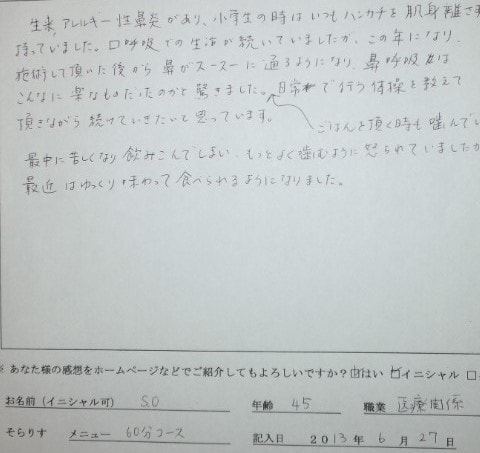 生来、アレルギー性鼻炎があり、小学生の時はいつもハンカチを肌身離さず
持っていました。口呼吸での生活が続いていましたが、この年になり、
施術して頂いた後から鼻がスースーに通るようになり、鼻呼吸は
こんなに楽なものだったのかと驚きました。日常で行う体操を教えて
頂きながら続けていきたいと思っています。
ごはんを頂く時も噛んでい
最中に苦しくなり飲みこんでしまい、もっとよく噛むように怒られていましたが
最近はゆっくり味わって食べられるようになりました。
※あなた様の感想をホームページなどでご紹介してもよろしいですか？□はい ☑イニシャル □
お名前（イニシャル可） S.O 年齢 45 職業 医療関係
そらりす メニュー 60分コース 記入日 2013年 6月 27日